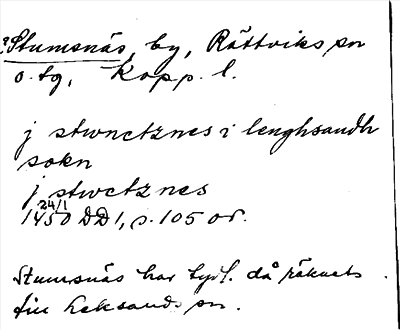 ? Stumsnäs, by, Rättviks sn
o. tg, Kopp. l.
j stwnctznes i lenghsandh
sokn
j stwctznes
24/1
1450 DD 1, s. 105 or.
Stumsnäs har tydl. då räknats
till Leksands sn.